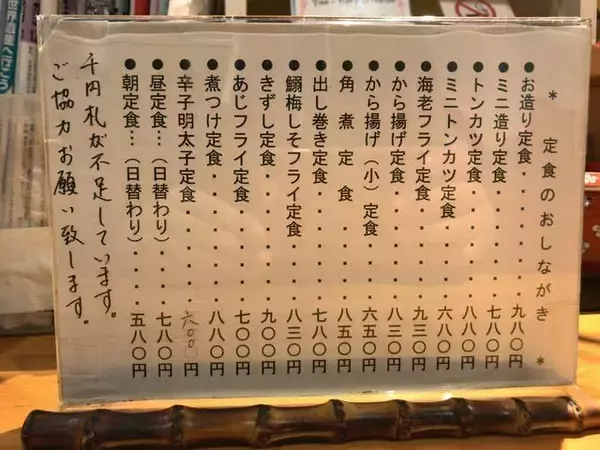 ＊ 定食のおしながき ＊
●お造り定食・・・・・・九八〇円
●ミニ造り定食・・・・・七八〇円
●トンカツ定食・・・・・八八〇円
●ミニトンカツ定食・・・六八〇円
●海老フライ定食・・・・九三〇円
●から揚げ定食・・・・・八三〇円
●から揚げ（小）定食・・六五〇円
●角煮定食・・・・・・・八五〇円
●出し巻き定食・・・・・七八〇円
●鰯梅しそフライ定食・・八三〇円
●きずし定食・・・・・・九〇〇円
●あじフライ定食・・・・七〇〇円
●煮つけ定食・・・・・・八八〇円
●辛子明太子定食・・・・六〇〇円
●昼定食…（日替わり）・・七八〇円
●朝定食…（日替わり）・・五八〇円
千円札が不足しています。
ご協力お願い致します。
世界遺産へ行こう